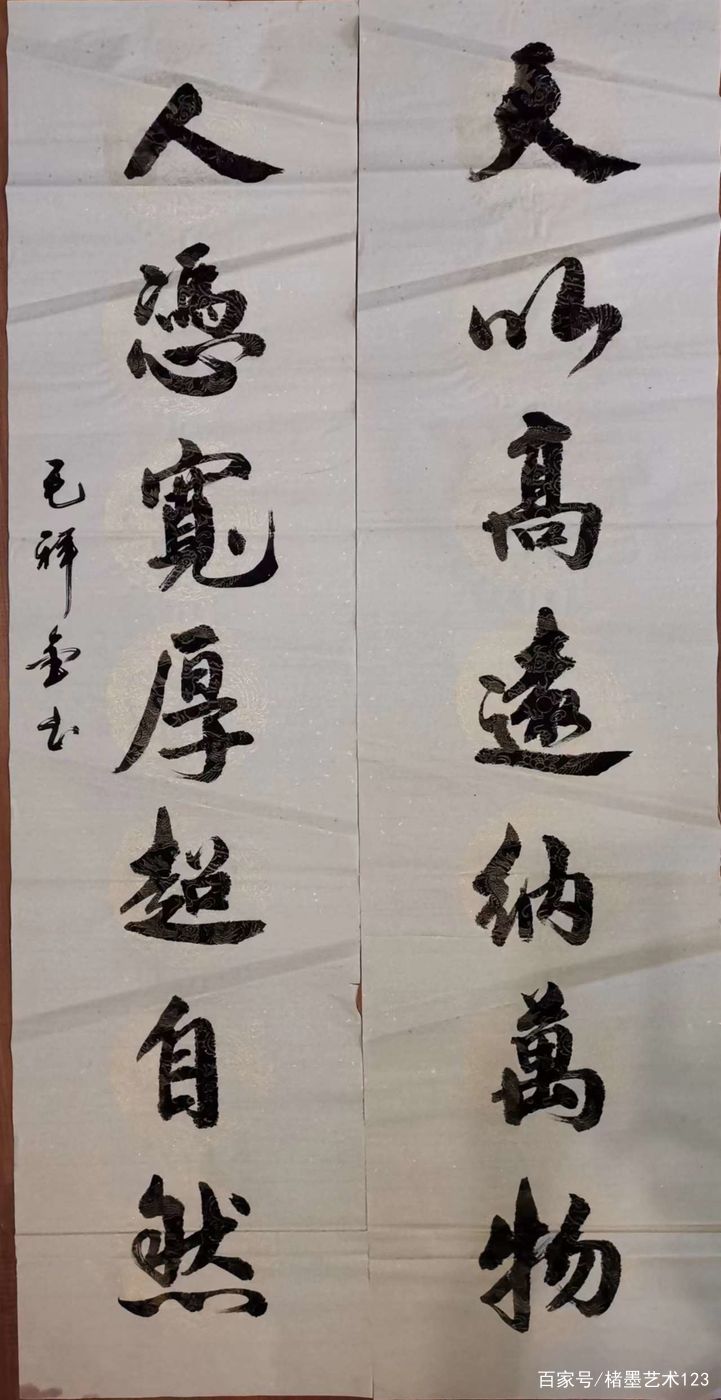 天以高遠納萬物
人憑寬厚超自然
毛祥金书
百家号/楮墨艺术123